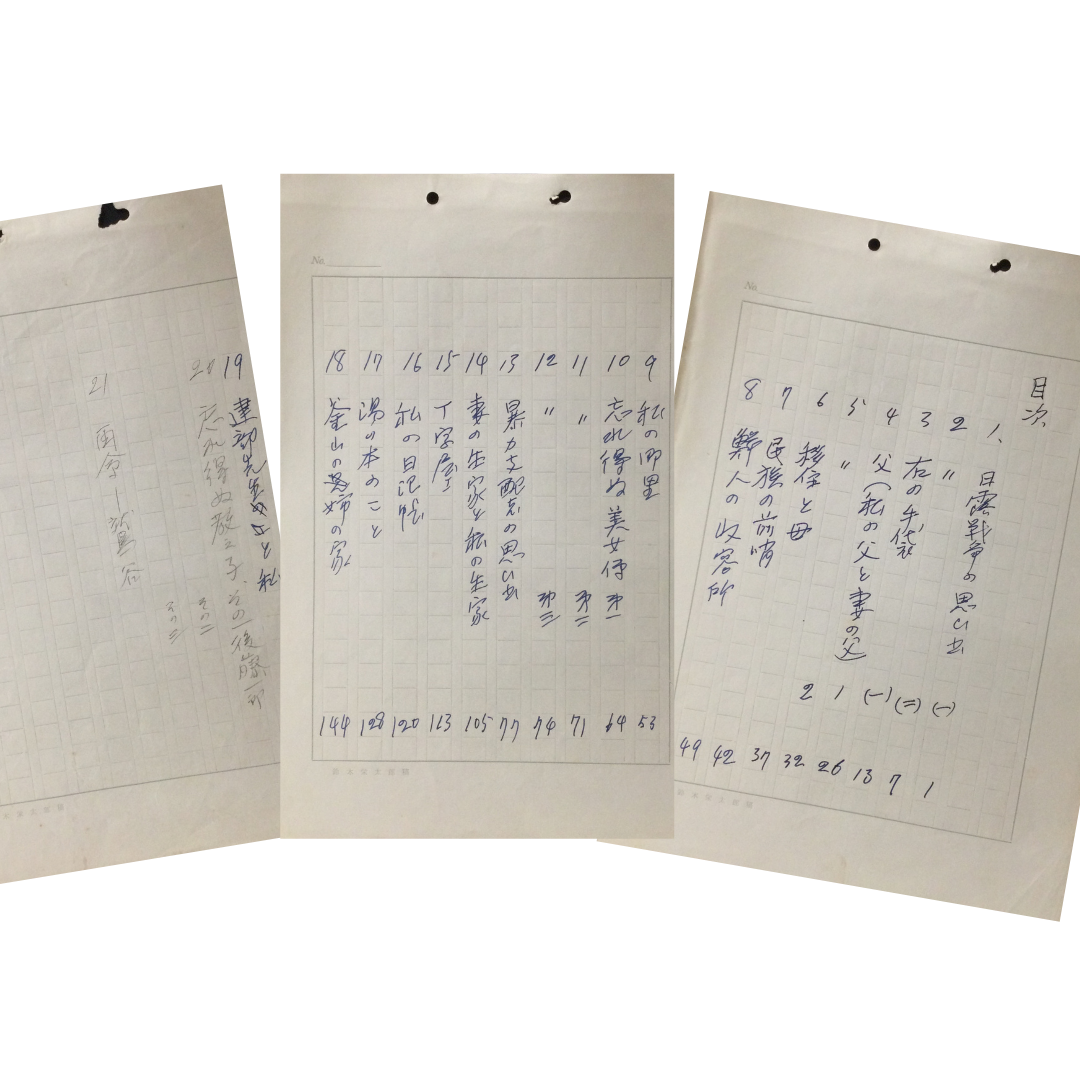 目次
1、日露戦争の思い出 (一) 1
2 〃 (二) 7
3 右の手袋 (一) 13
4 父(私の父と妻の父) 1 26
5 〃 2 32
6 移住と母 37
7 民族の前哨 42
8 鮮人の収容所 49
No.
9 私の郷里 53
10 忘れ得ぬ美女傳 才一 64
11 〃 才二 71
12 〃 才三 74
13 暴力支配の思い出 77
14 妻の生家と私の生家 105
15 丁字屋 113
16 私の日記帳 120
17 湯の本のこと 128
18 釜山の 姉の家 144
No.
19 建部先生 と私
20 忘れ得ぬ教え子、その一 後藤一郎
その二
その三
21